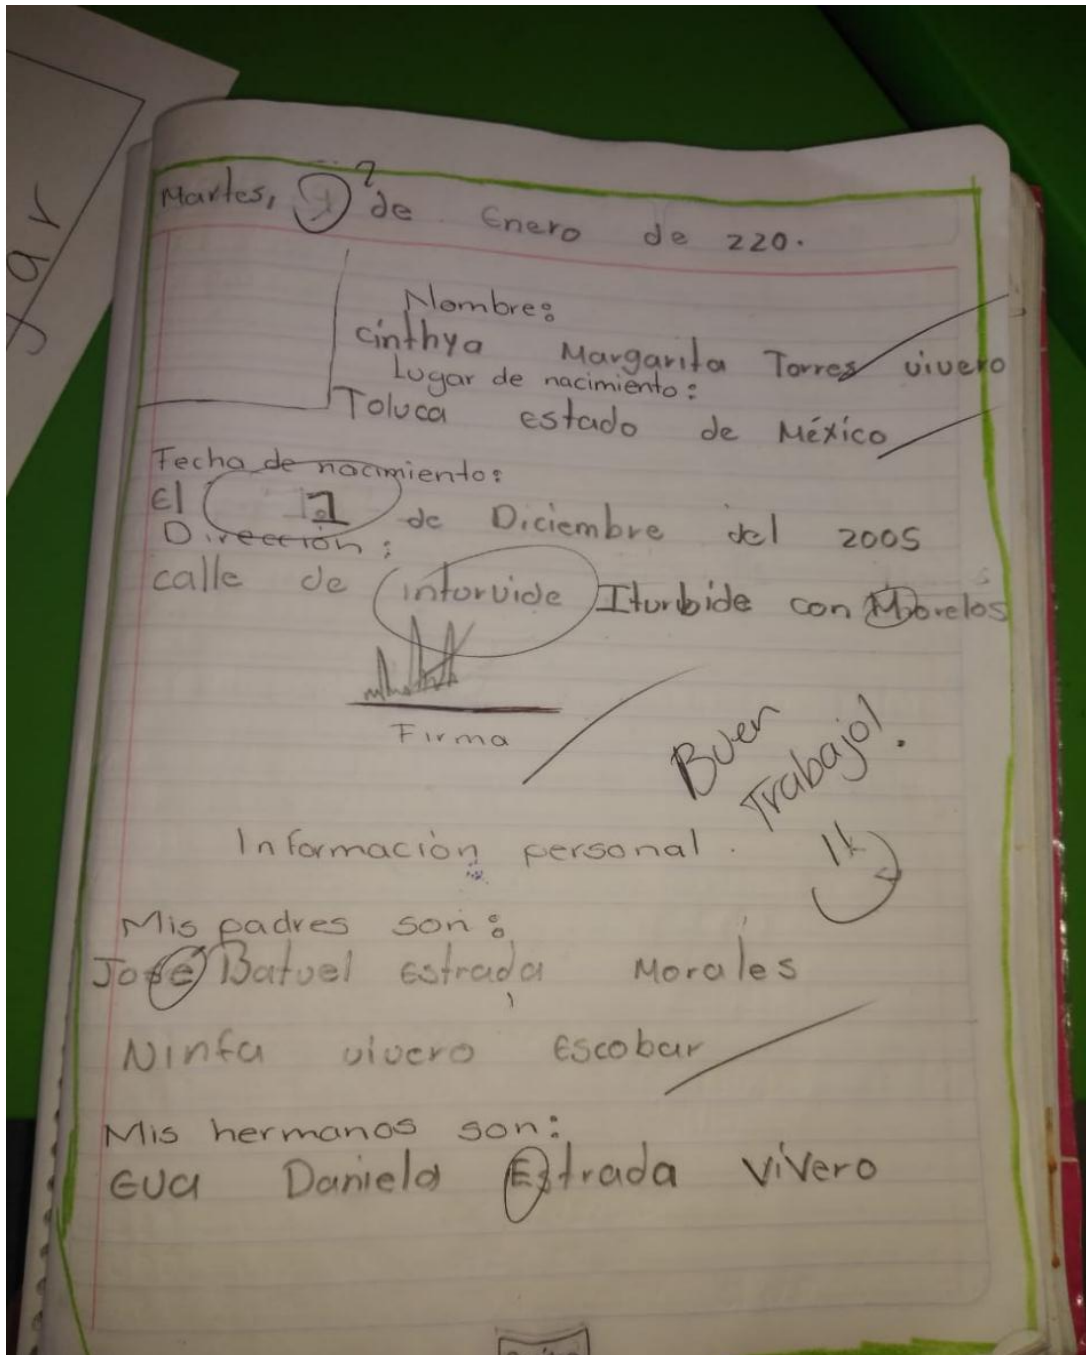 ar
Martes, de Enero de 220.
Nombre:
Cinthya Margarita Torres vivero
Lugar de nacimiento:
Toluca estado de México
Fecha de nacimiento:
El 1 de Diciembre del 2005
Dirección:
calle de intorvide Iturbide con Morelos
Firma
Buen
Trabajo!
Información personal.
Mis padres son:
José Batuel Estrada Morales
Ninfa vivero Escobar
Mis hermanos son:
Eva Daniela Estrada Vivero